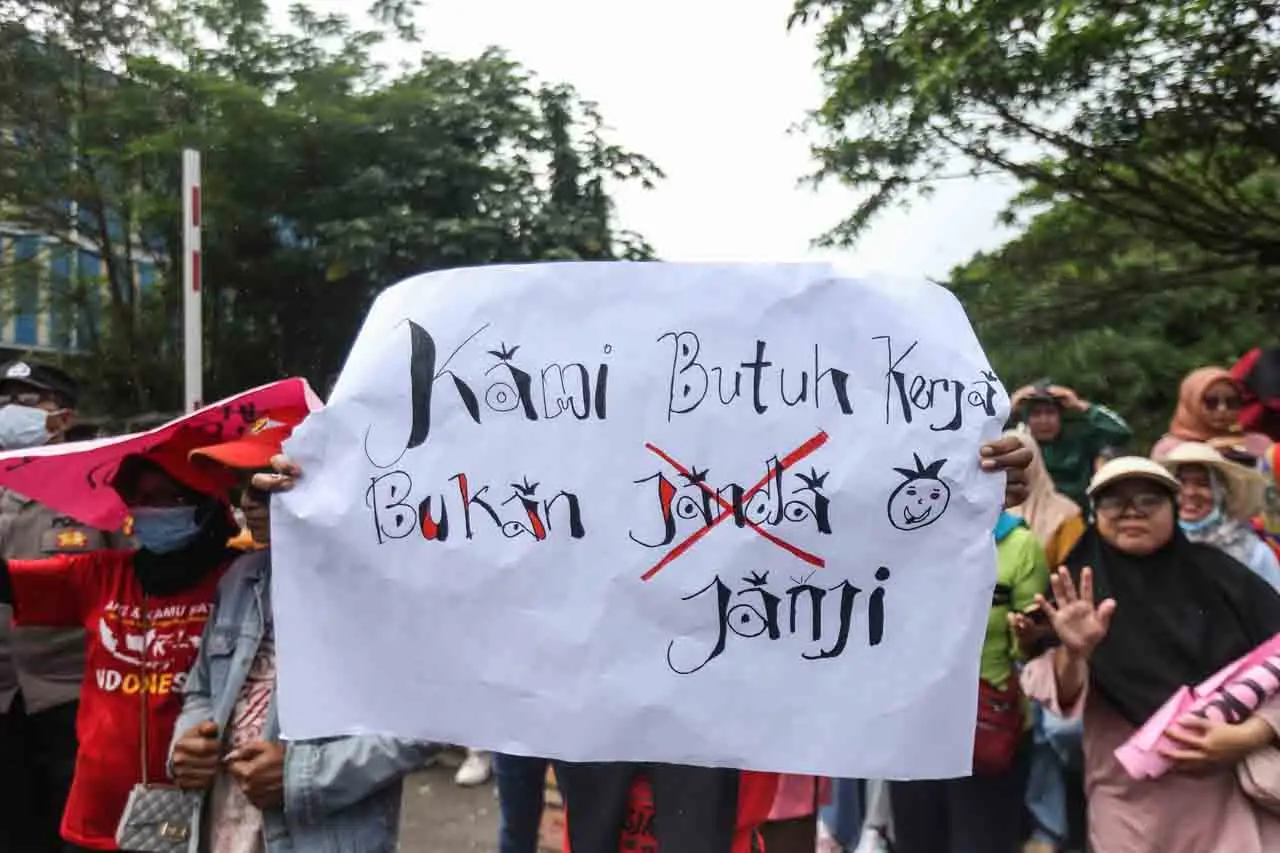 Kami Butuh Kerja
Bukan Janda
Janji
INDONES